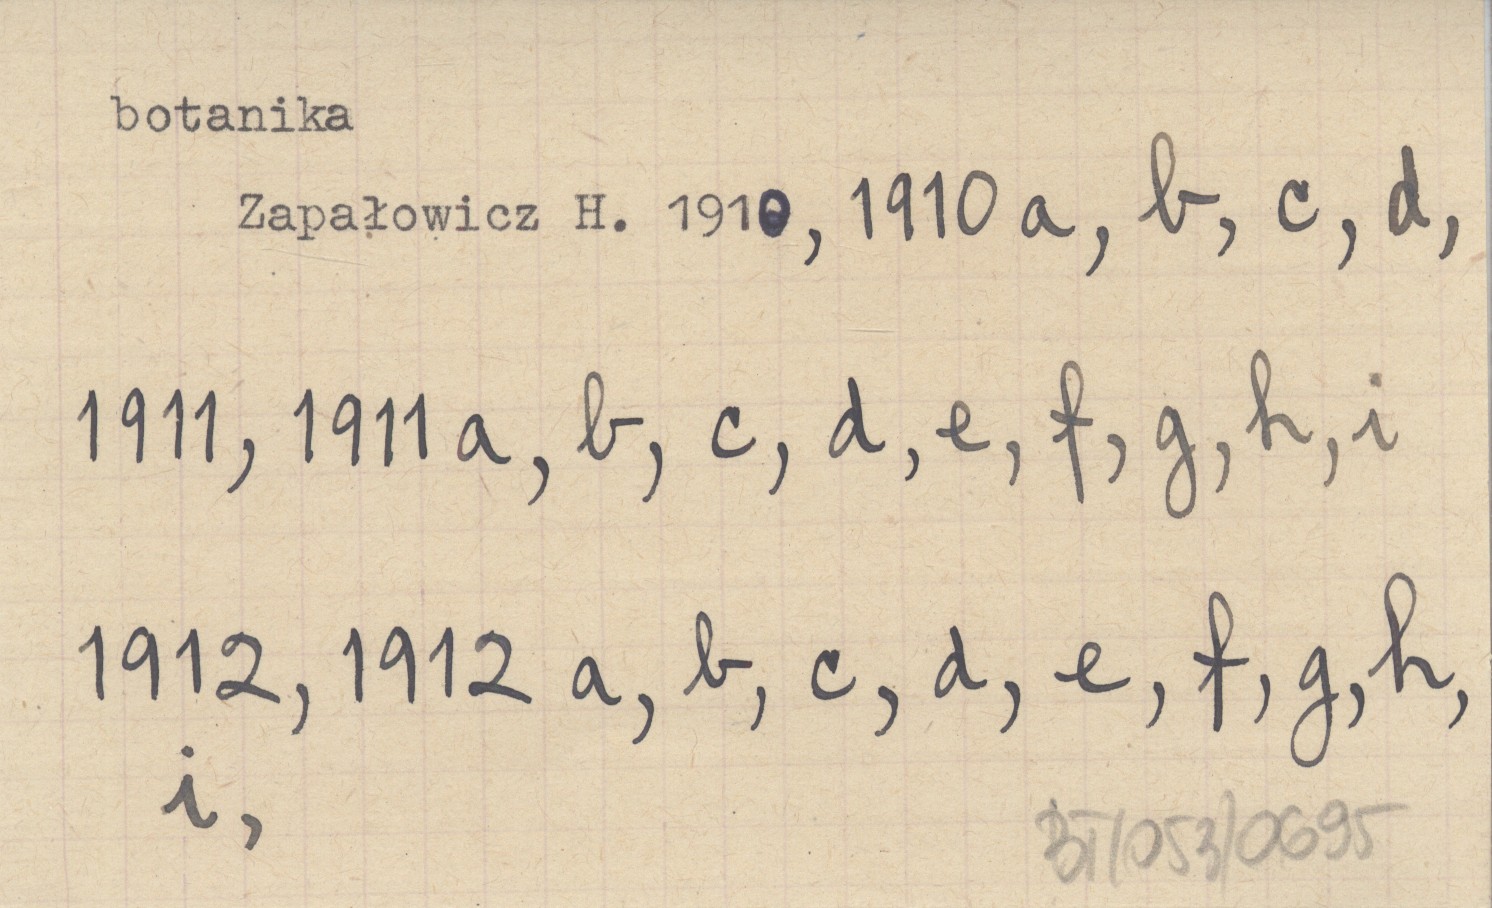 botanika
Zapałowicz H. 1910, 1910 a, b, c, d,
1911, 1911 a, b, c, d, e, f, g, h, i
1912, 1912 a, b, c, d, e, f, g, h,
i,
BT/053/0695